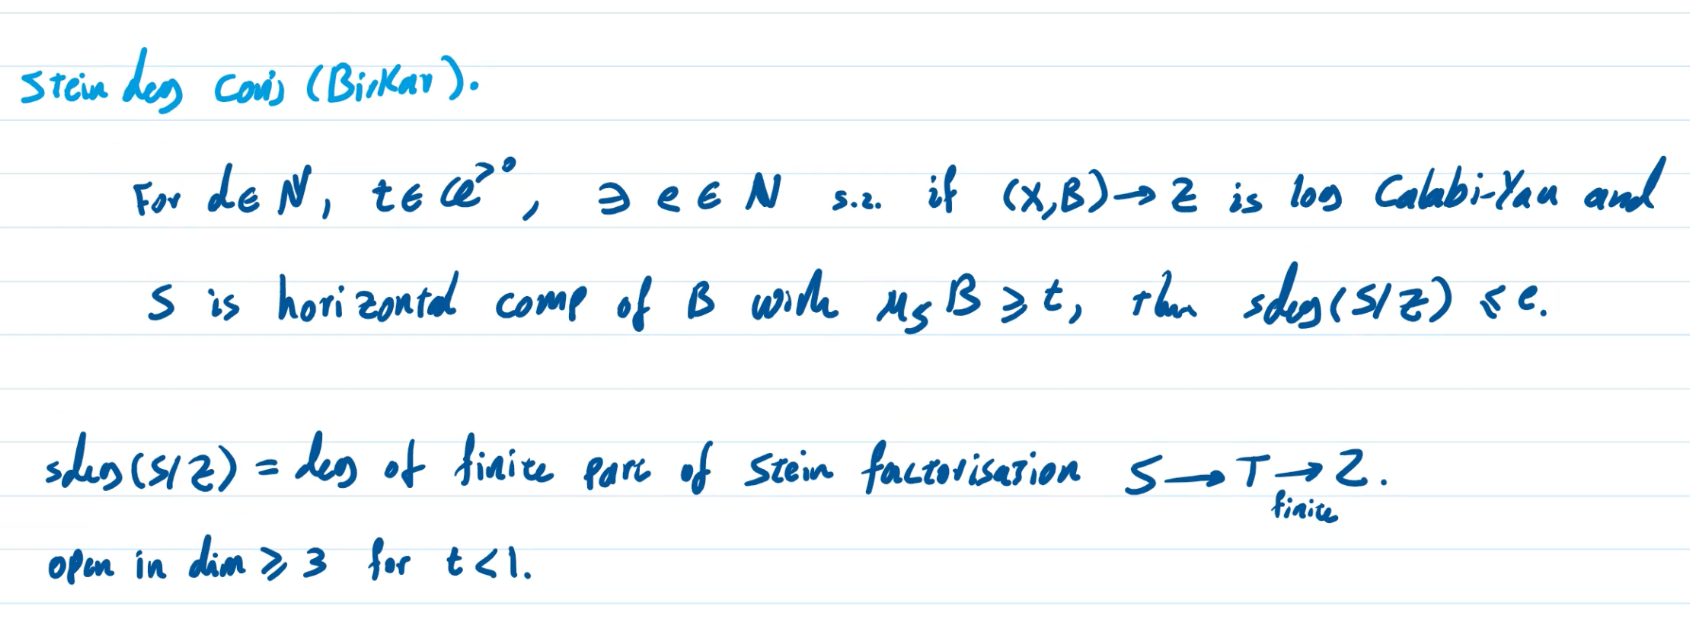 Stein deg conj (Birkar).
For d ∈ ℕ, t ∈ ℚ^{>0}, ∃ e ∈ ℕ s.t. if (X,B) → Z is log Calabi-Yau and
S is horizontal comp of B with μ_S B ≥ t, then sdeg(S/Z) ≤ e.
sdeg(S/Z) = deg of finite part of Stein factorisation S → T → Z.
finite
open in dim ≥ 3 for t < 1.